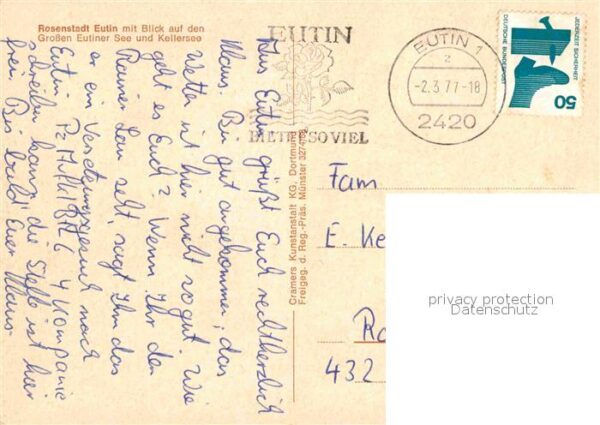 Rosenstadt Eutin mit Blick auf den
Großen Eutiner See und Kellersee
EUTIN
BIETET SO VIEL
EUTIN 1
z
-2.3.77-18
2420
DEUTSCHE BUNDESPOST
JEDERZEIT SICHERHEIT
50
Aus Eutin grüßt Euch recht herzlich
Klaus. Bin gut angekommen, das
Wetter ist hier nicht so gut. Wie
geht es Euch? Wenn Ihr den
Rainer Lau seht, sagt Ihm das
er ein Versetzungsgesuch nach
Eutin 4 Kompanie
schreiben kann, die Stelle ist hier
frei. Bis bald Euer Klaus
Cramers Kunstanstalt KG, Dortmund
Freigeg. d. Reg.-Präs. Münster
Fam
E. Ke
Ra
432
privacy protection
Datenschutz